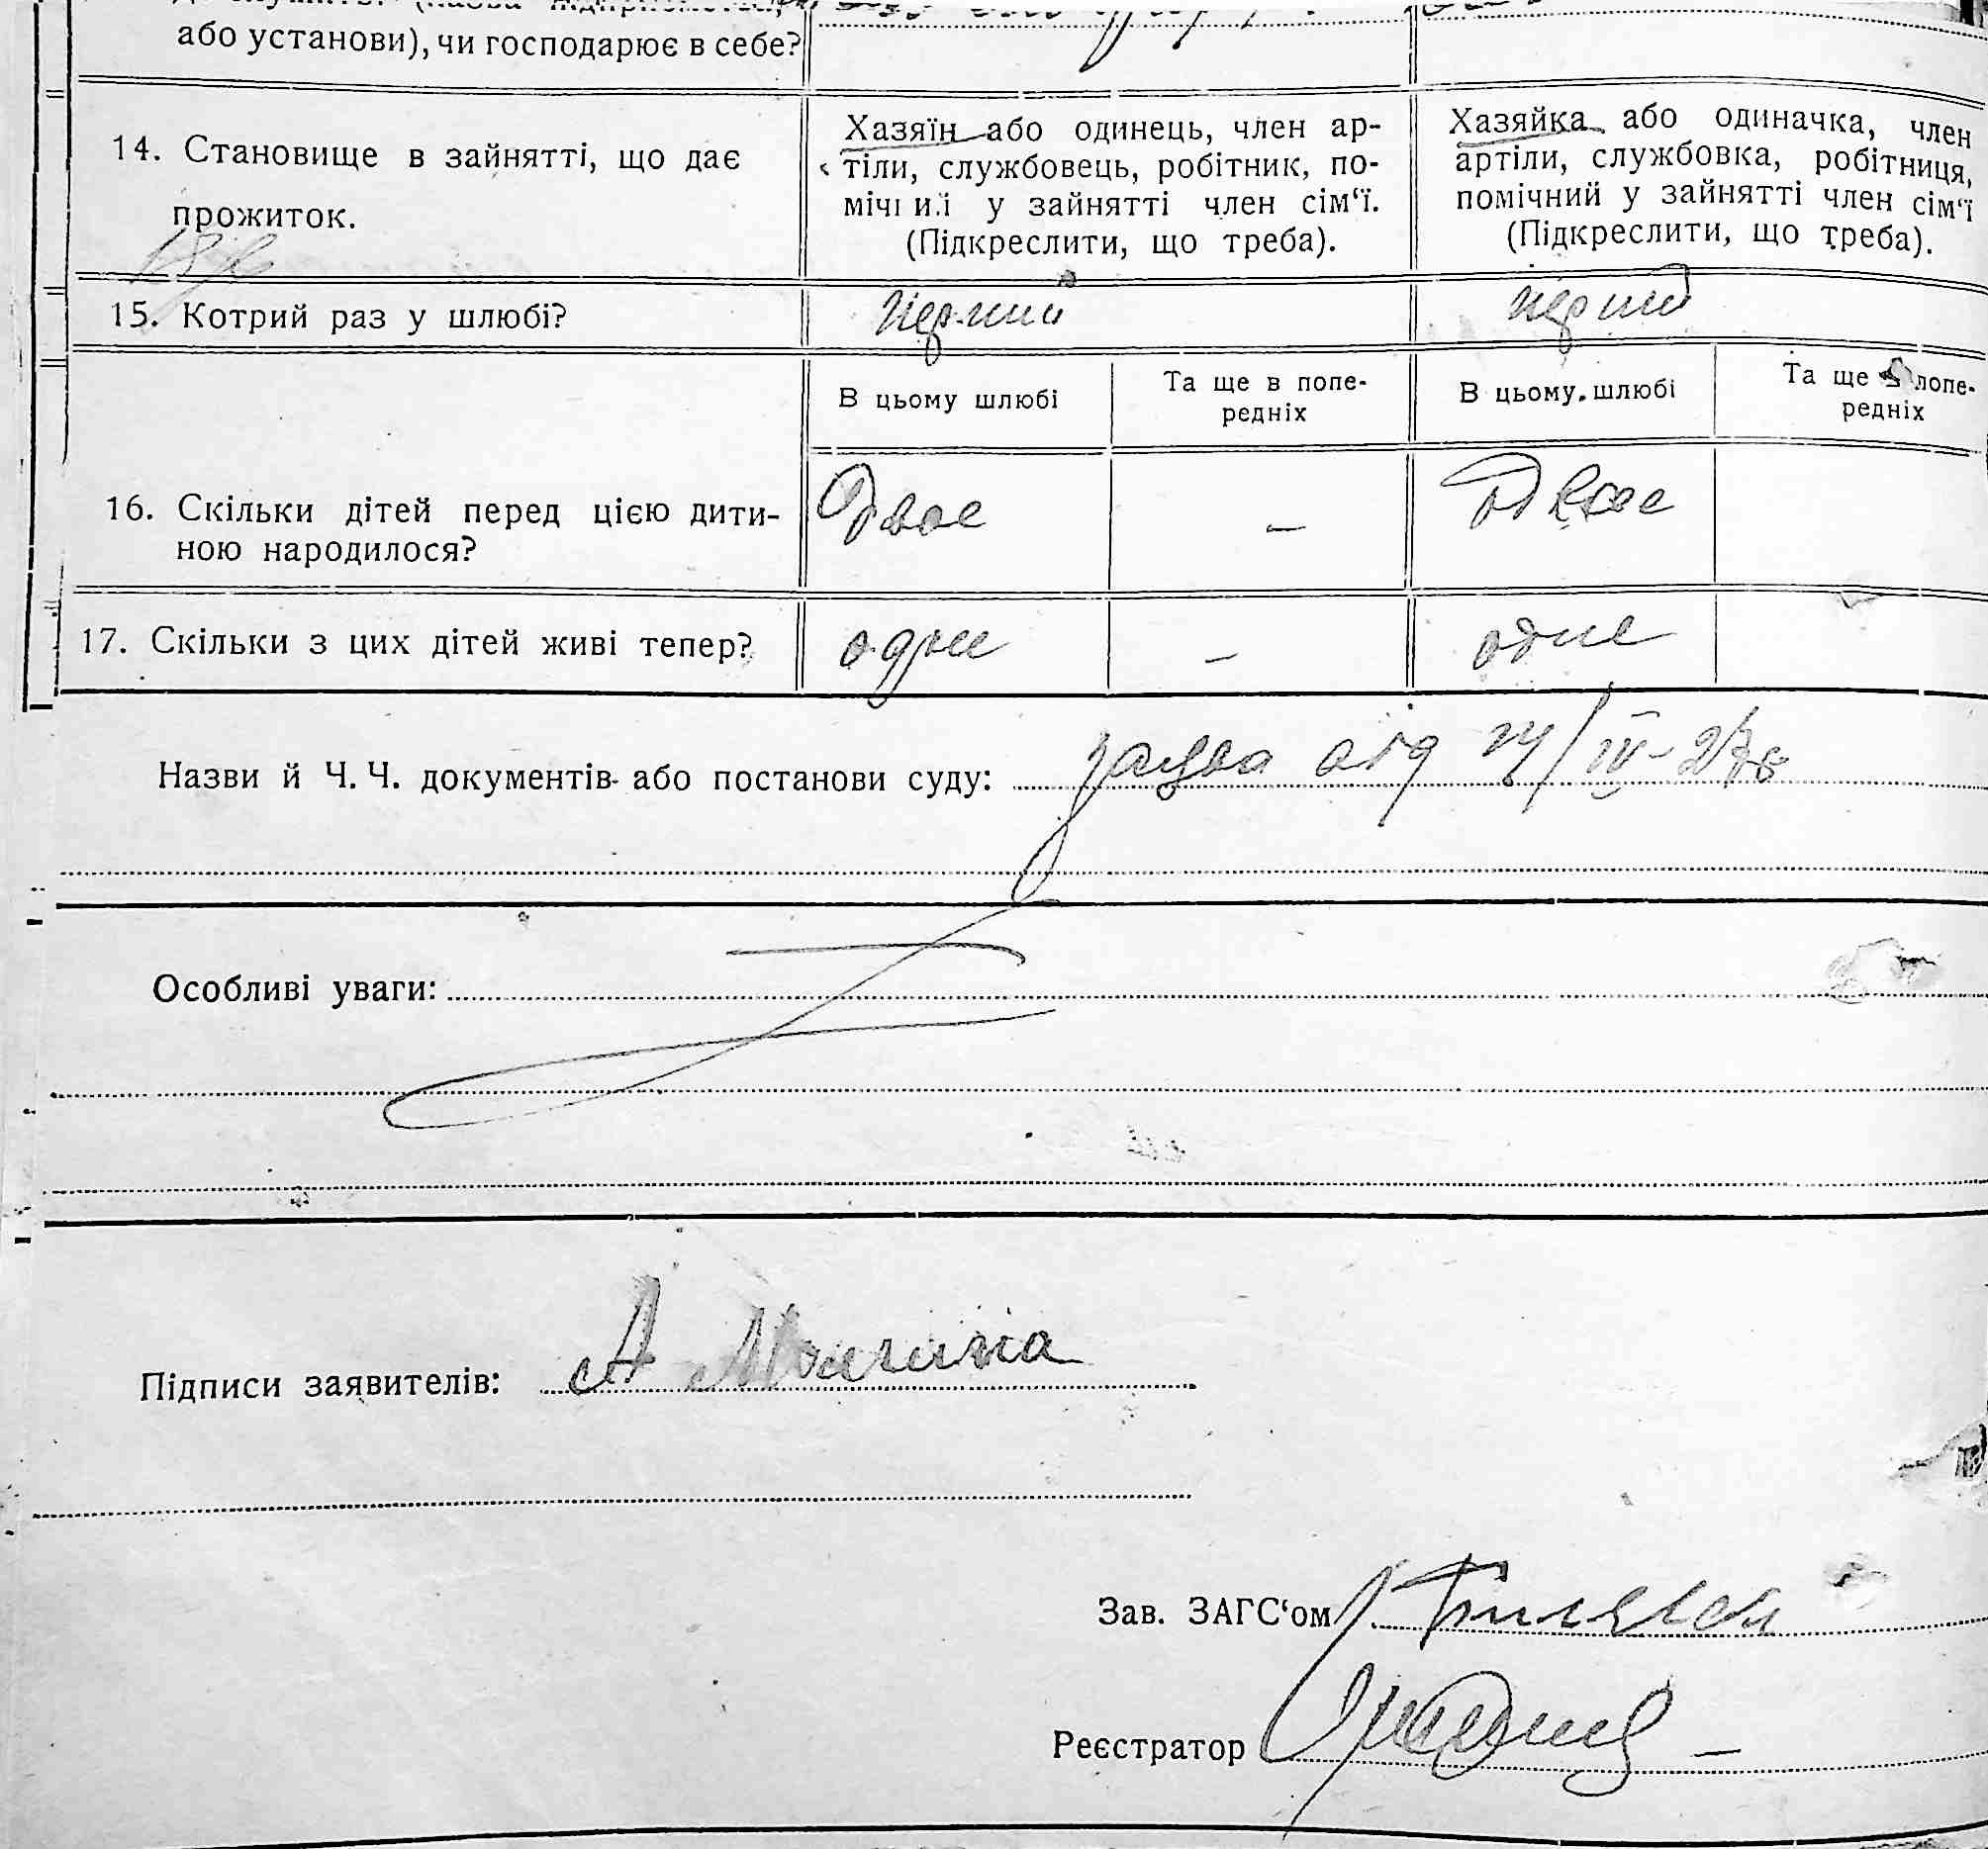 або установи), чи господарює в себе?
14. Становище в зайнятті, що дає
прожиток.
Хазяїн або одинець, член ар-
тіли, службовець, робітник, по-
мічний у зайнятті член сім‘ї.
(Підкреслити, що треба).
Хазяйка або одиначка, член
артіли, службовка, робітниця,
помічний у зайнятті член сім‘ї
(Підкреслити, що треба).
15. Котрий раз у шлюбі?
перший
перший
В цьому шлюбі
Та ще в попе-
редніх
В цьому шлюбі
Та ще в попе-
редніх
16. Скільки дітей перед цією дити-
ною народилося?
Двоє
–
Двоє
17. Скільки з цих дітей живі тепер?
одне
–
одне
Назви й Ч. Ч. документів або постанови суду: заява від
Особливі уваги:
Підписи заявителів: А
Зав. ЗАГС‘ом
Реєстратор